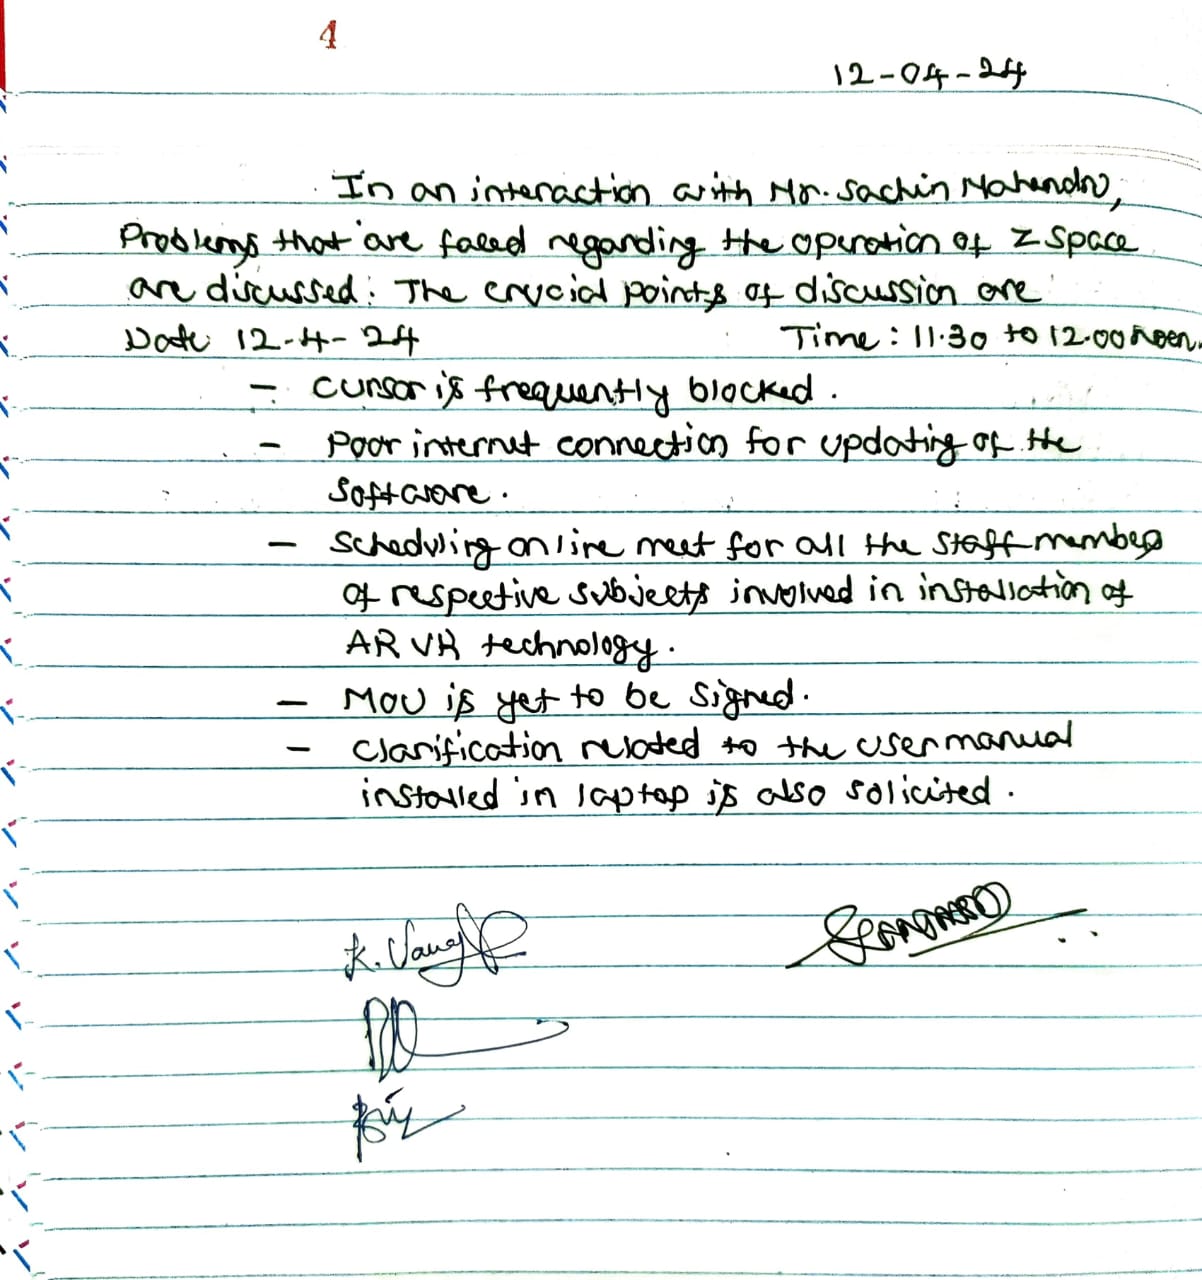 4
12-04-24
In an interaction with Mr. Sachin Mahendru,
Problems that are faced regarding the operation of Z space
are discussed. The crucial points of discussion are
Date 12-4-24 Time: 11.30 to 12.00 Noon.
- Cursor is frequently blocked.
- Poor internet connection for updating of the
software.
- Scheduling online meet for all the staff members
of respective subjects involved in installation of
AR VR technology.
- MOU is yet to be signed.
- Clarification related to the user manual
installed in laptop is also solicited.